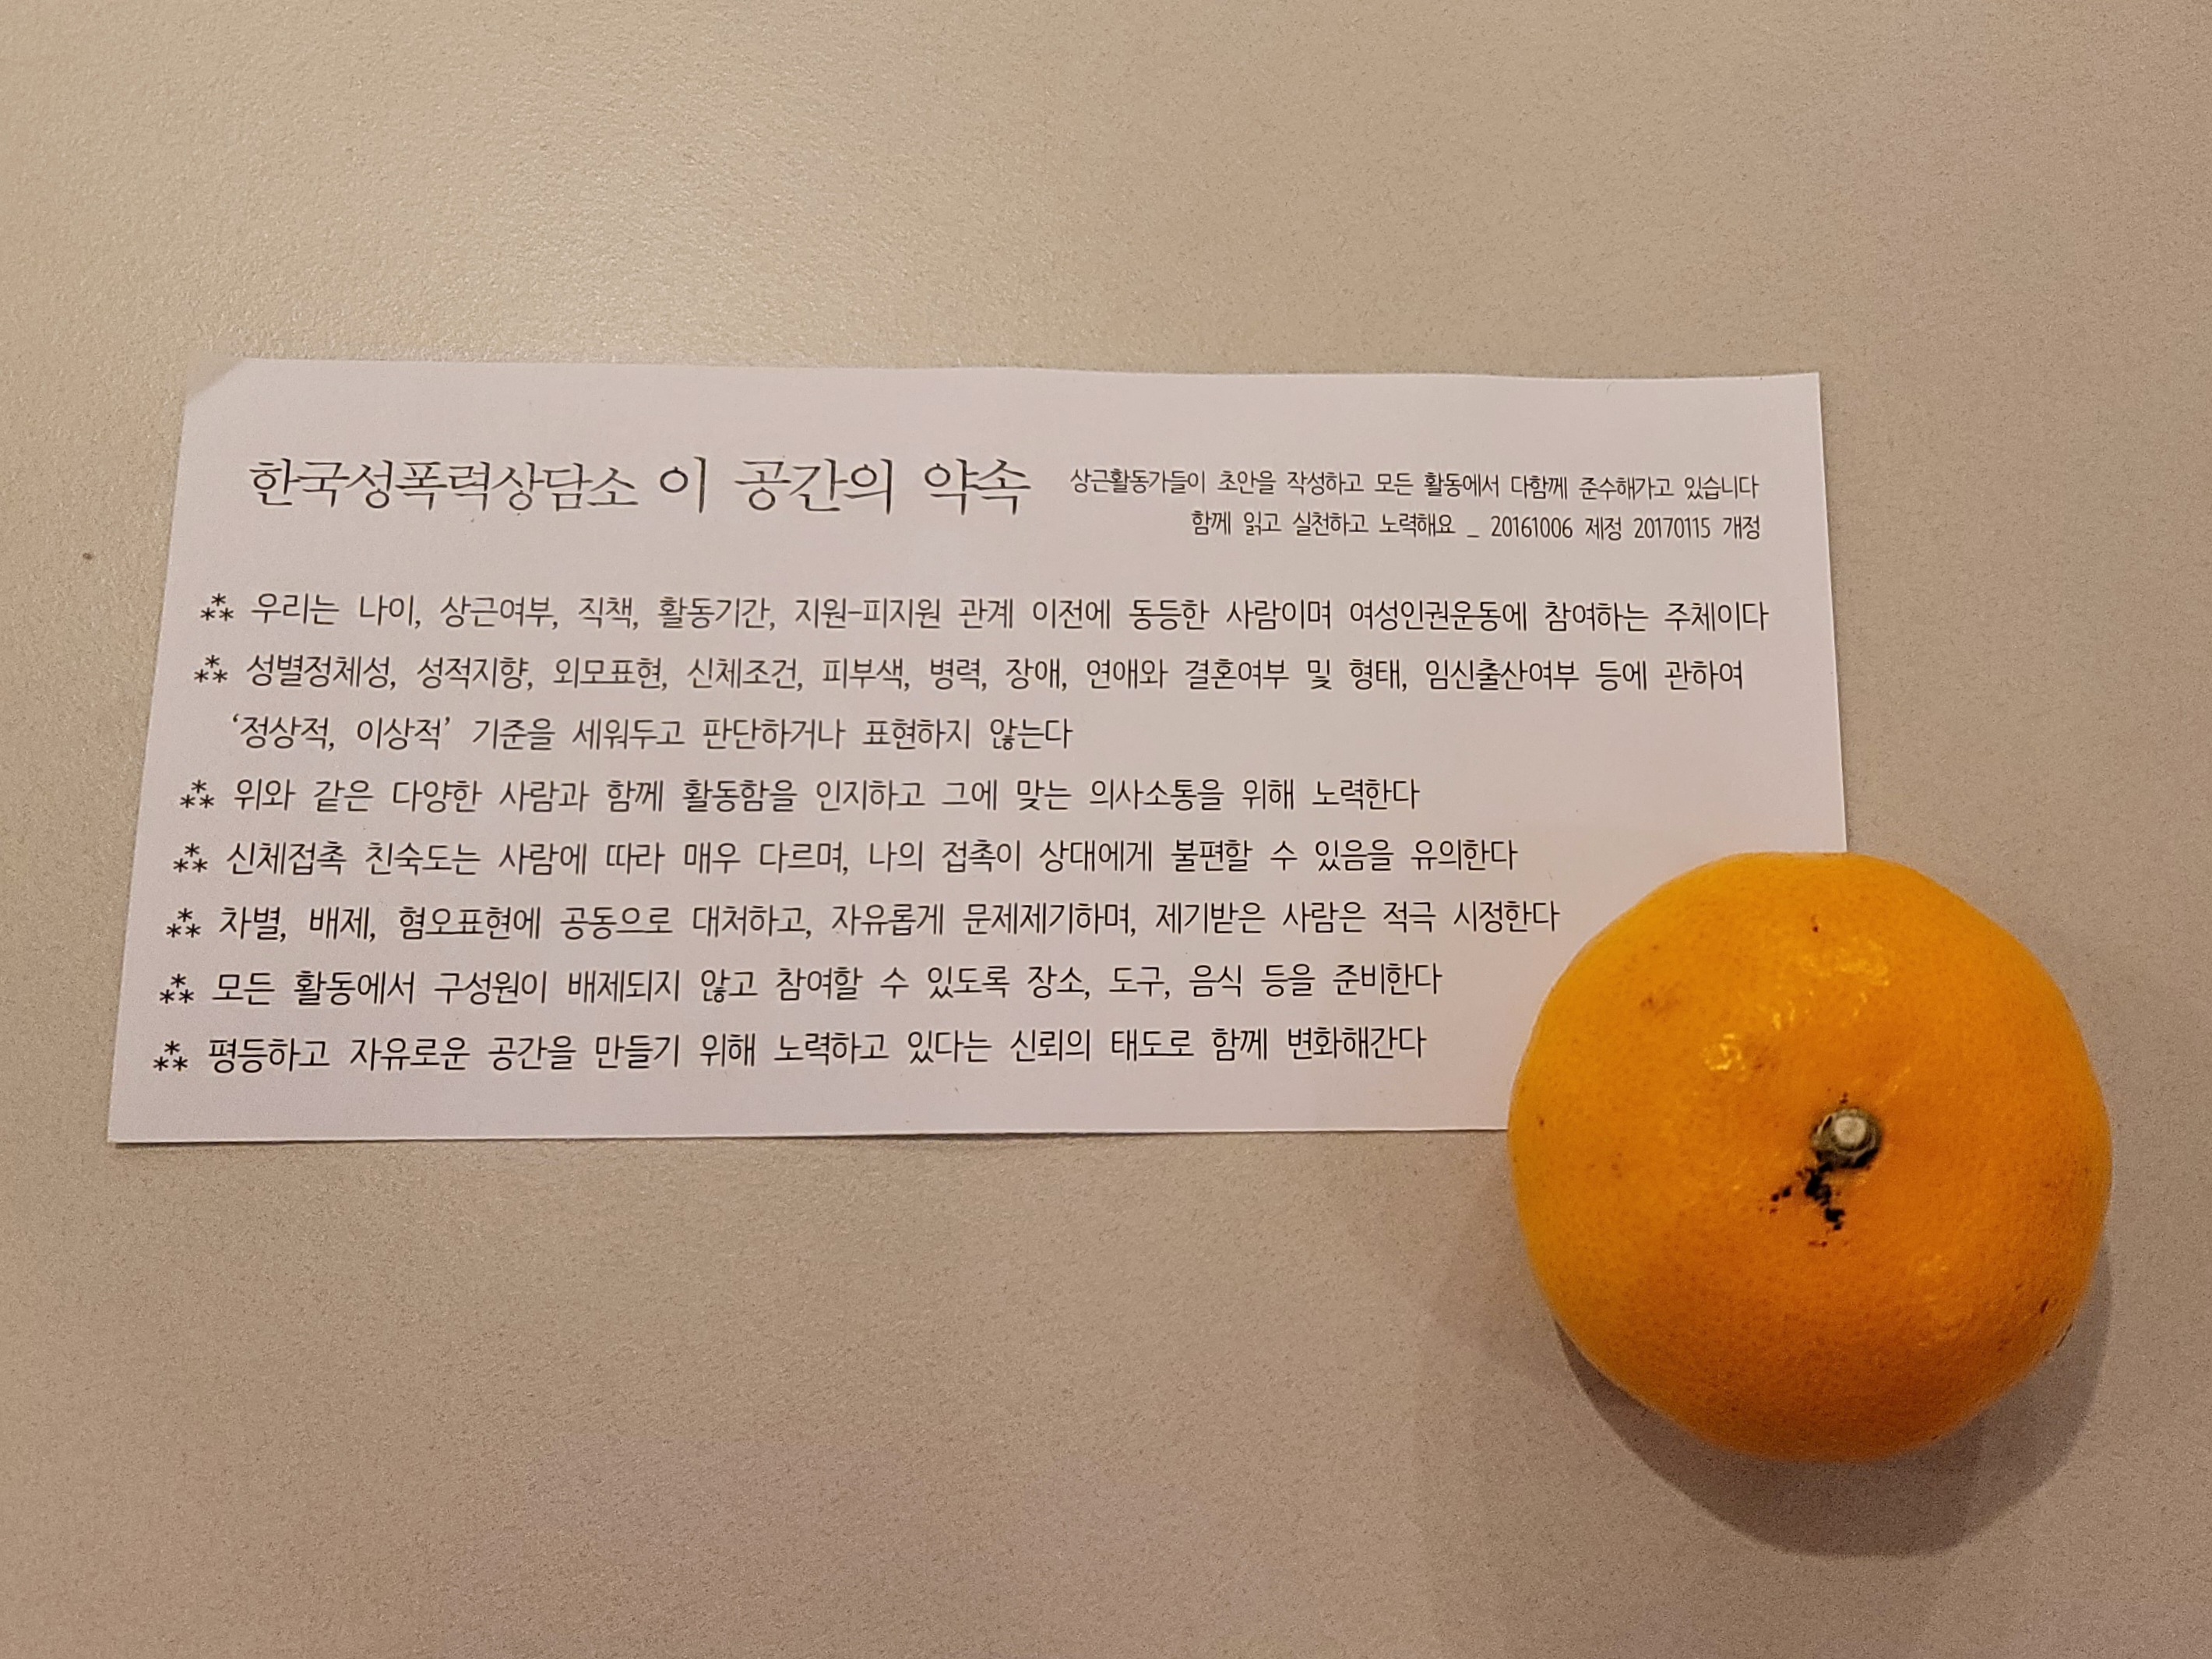 한국성폭력상담소 이 공간의 약속
상근활동가들이 초안을 작성하고 모든 활동에서 다함께 준수해가고 있습니다
함께 읽고 실천하고 노력해요 _ 20161006 제정 20170115 개정
⁂ 우리는 나이, 상근여부, 직책, 활동기간, 지원-피지원 관계 이전에 동등한 사람이며 여성인권운동에 참여하는 주체이다
⁂ 성별정체성, 성적지향, 외모표현, 신체조건, 피부색, 병력, 장애, 연애와 결혼여부 및 형태, 임신출산여부 등에 관하여
‘정상적, 이상적’ 기준을 세워두고 판단하거나 표현하지 않는다
⁂ 위와 같은 다양한 사람과 함께 활동함을 인지하고 그에 맞는 의사소통을 위해 노력한다
⁂ 신체접촉 친숙도는 사람에 따라 매우 다르며, 나의 접촉이 상대에게 불편할 수 있음을 유의한다
⁂ 차별, 배제, 혐오표현에 공동으로 대처하고, 자유롭게 문제제기하며, 제기받은 사람은 적극 시정한다
⁂ 모든 활동에서 구성원이 배제되지 않고 참여할 수 있도록 장소, 도구, 음식 등을 준비한다
⁂ 평등하고 자유로운 공간을 만들기 위해 노력하고 있다는 신뢰의 태도로 함께 변화해간다